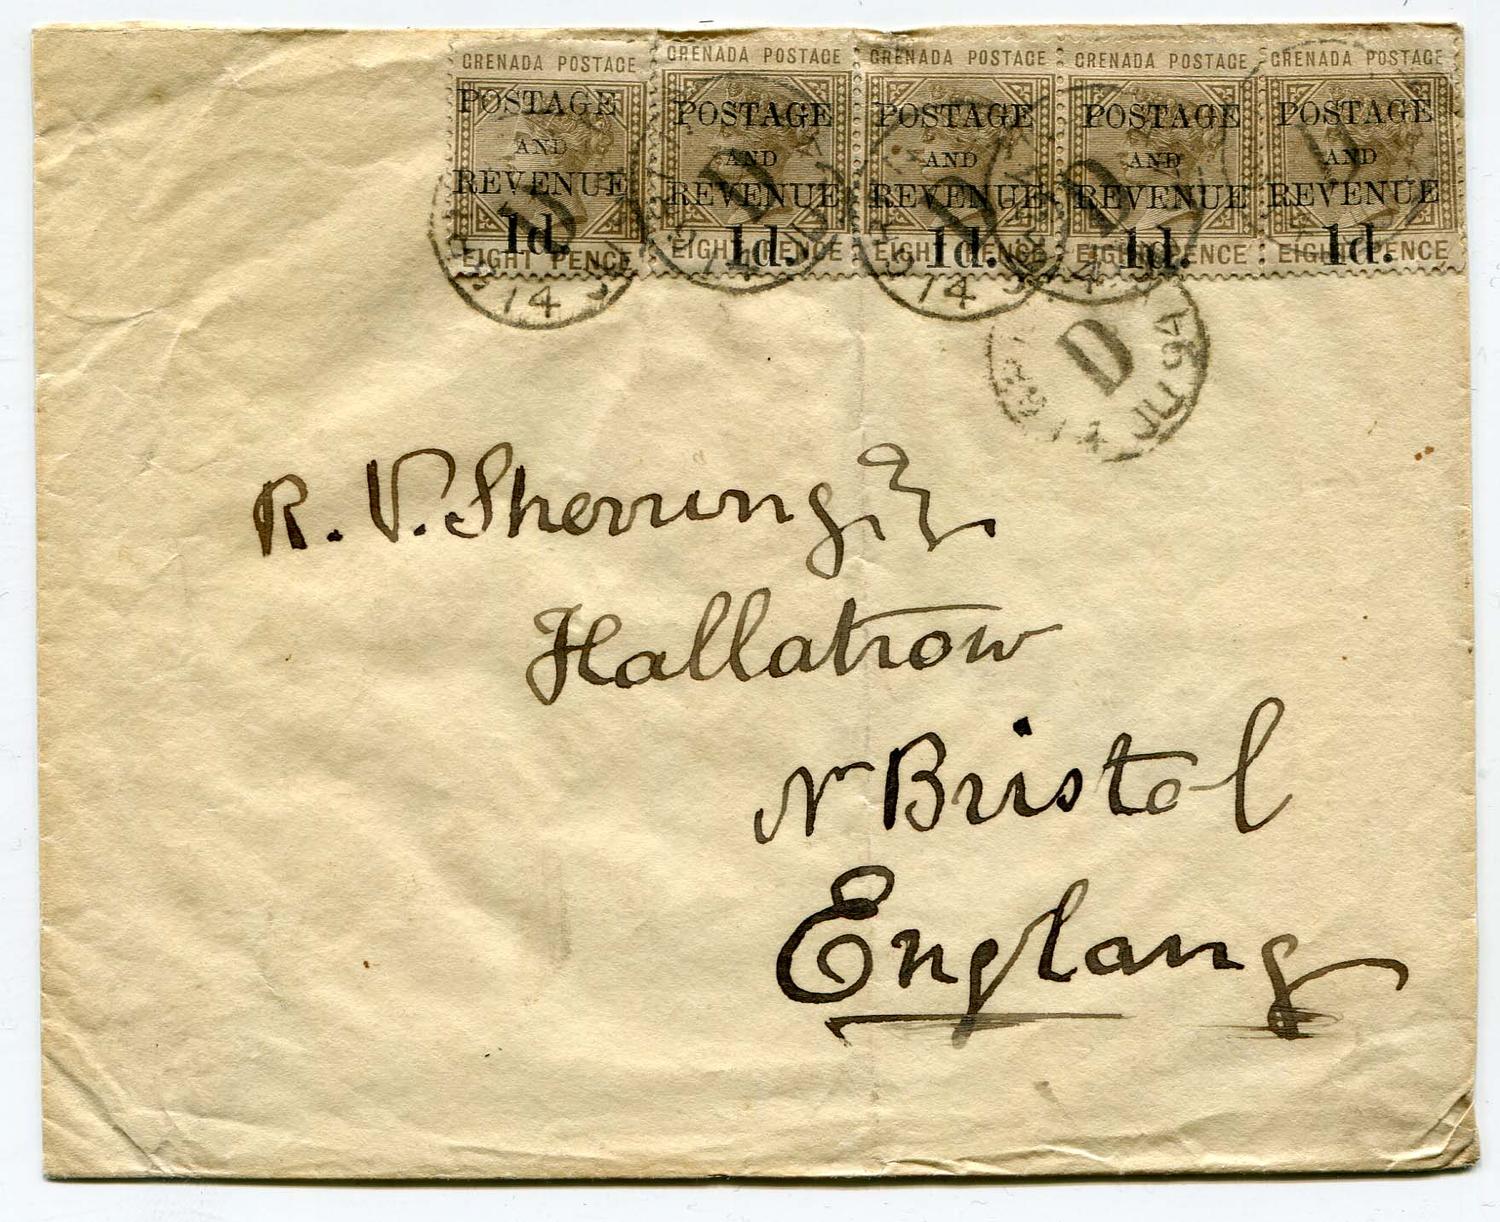 GRENADA POSTAGE GRENADA POSTAGE GRENADA POSTAGE GRENADA POSTAGE GRENADA POSTAGE
POSTAGE POSTAGE POSTAGE POSTAGE POSTAGE
AND AND AND AND AND
REVENUE REVENUE REVENUE REVENUE REVENUE
1d. 1d. 1d. 1d. 1d.
EIGHT PENCE EIGHT PENCE EIGHT PENCE EIGHT PENCE EIGHT PENCE
D D D D
14 14 14
D
JU 94
R. V. Sherring
Hallatrow
Nr Bristol
England